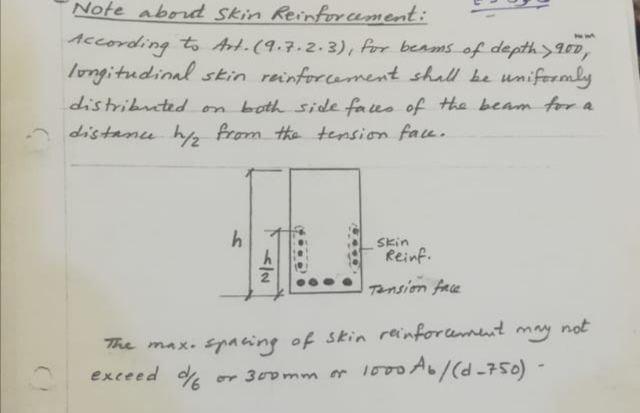 Note about Skin Reinforcement:
According to Art. (9.7.2.3), for beams of depth > 900 mm,
longitudinal skin reinforcement shall be uniformly
distributed on both side faces of the beam for a
distance h/2 from the tension face.
h
h/2
Skin
Reinf.
Tension face
The max. spacing of skin reinforcement may not
exceed d/6 or 300mm or 1000 Ab/(d-750) -